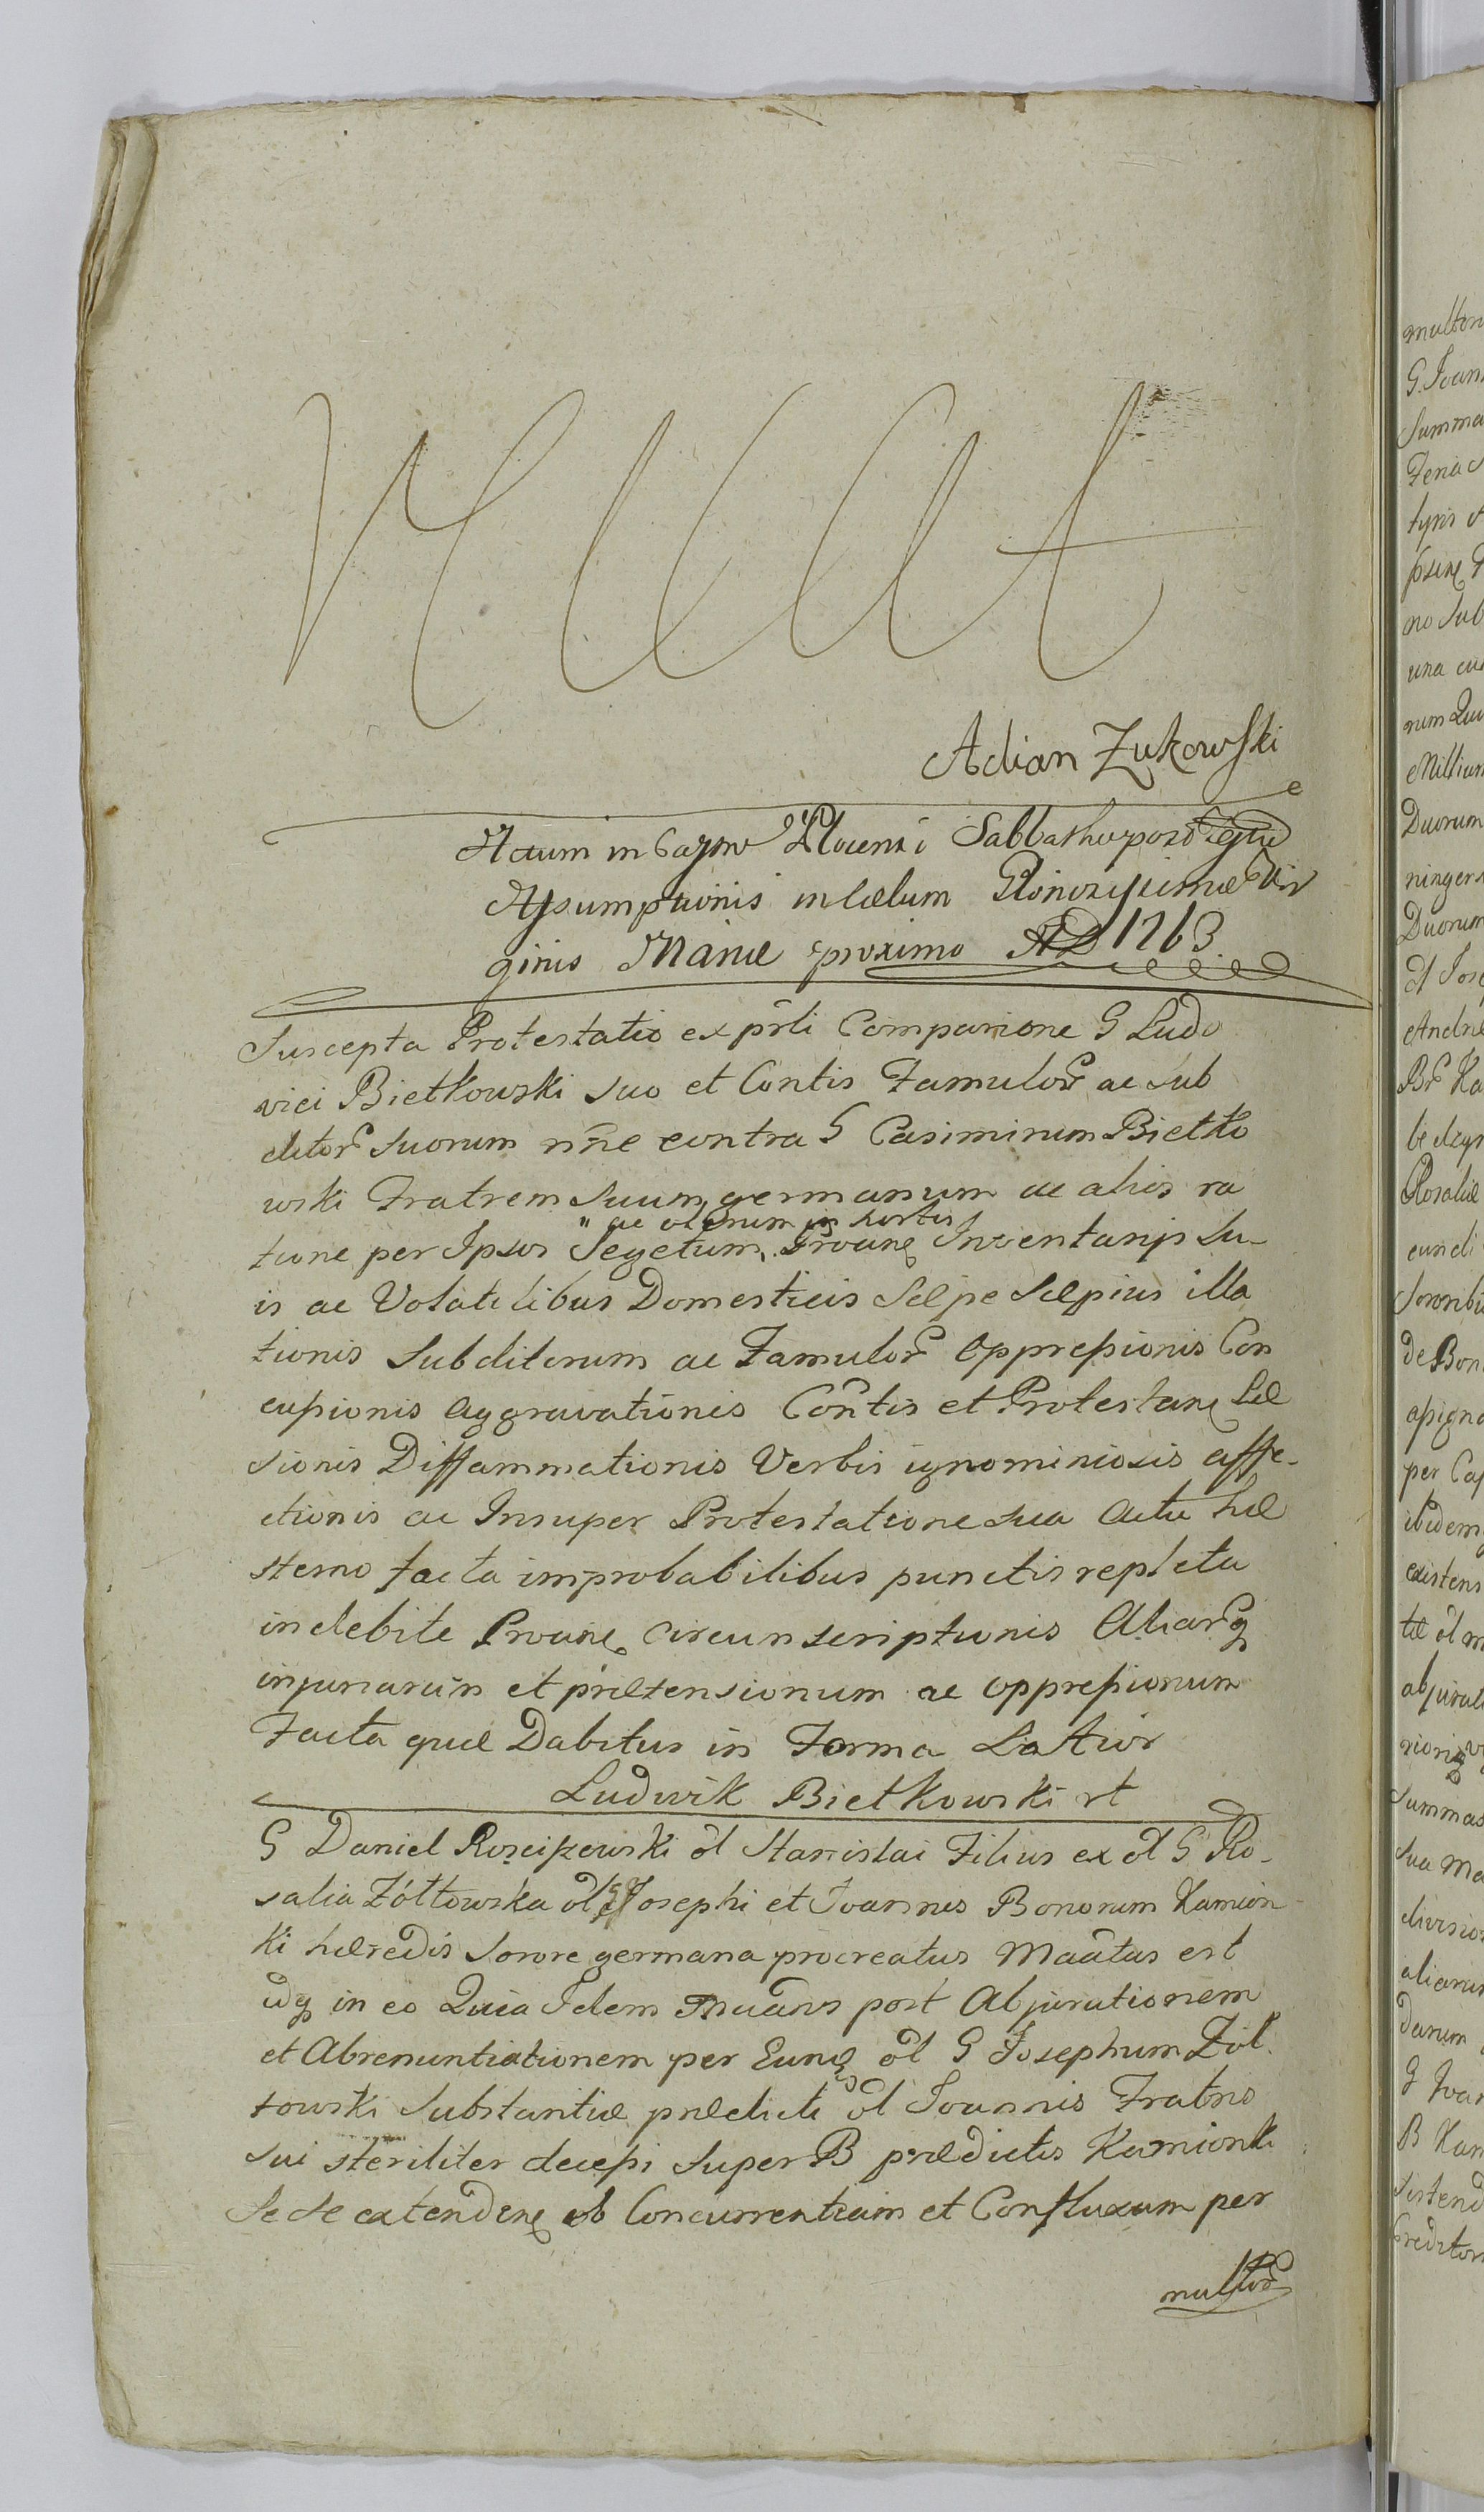 Adian Zukowski
Actum in Castro Plocensi Sabbatho post Festum
Assumptionis in Cælum Gloriosissimæ Vir
ginis Mariæ proximo AD 1763
Suscepta Protestatio ex pñli Comparitione G Ludo
vici Bietkowski suo et Contis Famulor ac sub
ditor suorum nñe contra G Casimirum Bietko
wski Fratrem suum germanum ac alios ra
tione per Ipsos Segetum, ac olerum in hortis Inventarijs su-
is ac Volatilibus Domesticis sæpe sæpius illa
tionis Subditorum ac Famulor oppressionis Con
cussionis aggravationis Contis et Protestantis Læ
sionis Diffammationis Verbis ignominiosis affe-
ctionis ac Insuper Protestatione sua actu hæ
sterno facta improbabilibus punctis repleta
indebite circumscriptionis Aliarq
injuriarum et prætensionum ac oppressionum
Facta quæ Dabitur in Forma Latior
Ludwik Bietkowski
G Daniel Rosciszewski ol Stanislai Filius ex ol G Ro-
salia Zółtowska ol Josephi et Joannes Bonorum Kamion
ki hæredis sorore germana procreatus Maãtus est
idq in eo Quia Idem post Abjurationem
et Abrenuntiationem per Eunq ol G Josephum Zół
towski Substantiæ prædicti ol Joannis Fratris
sui steriliter decessi super B prædictis Kamionki
se se extenden ob Concurrentiam et Confluxum per
multor